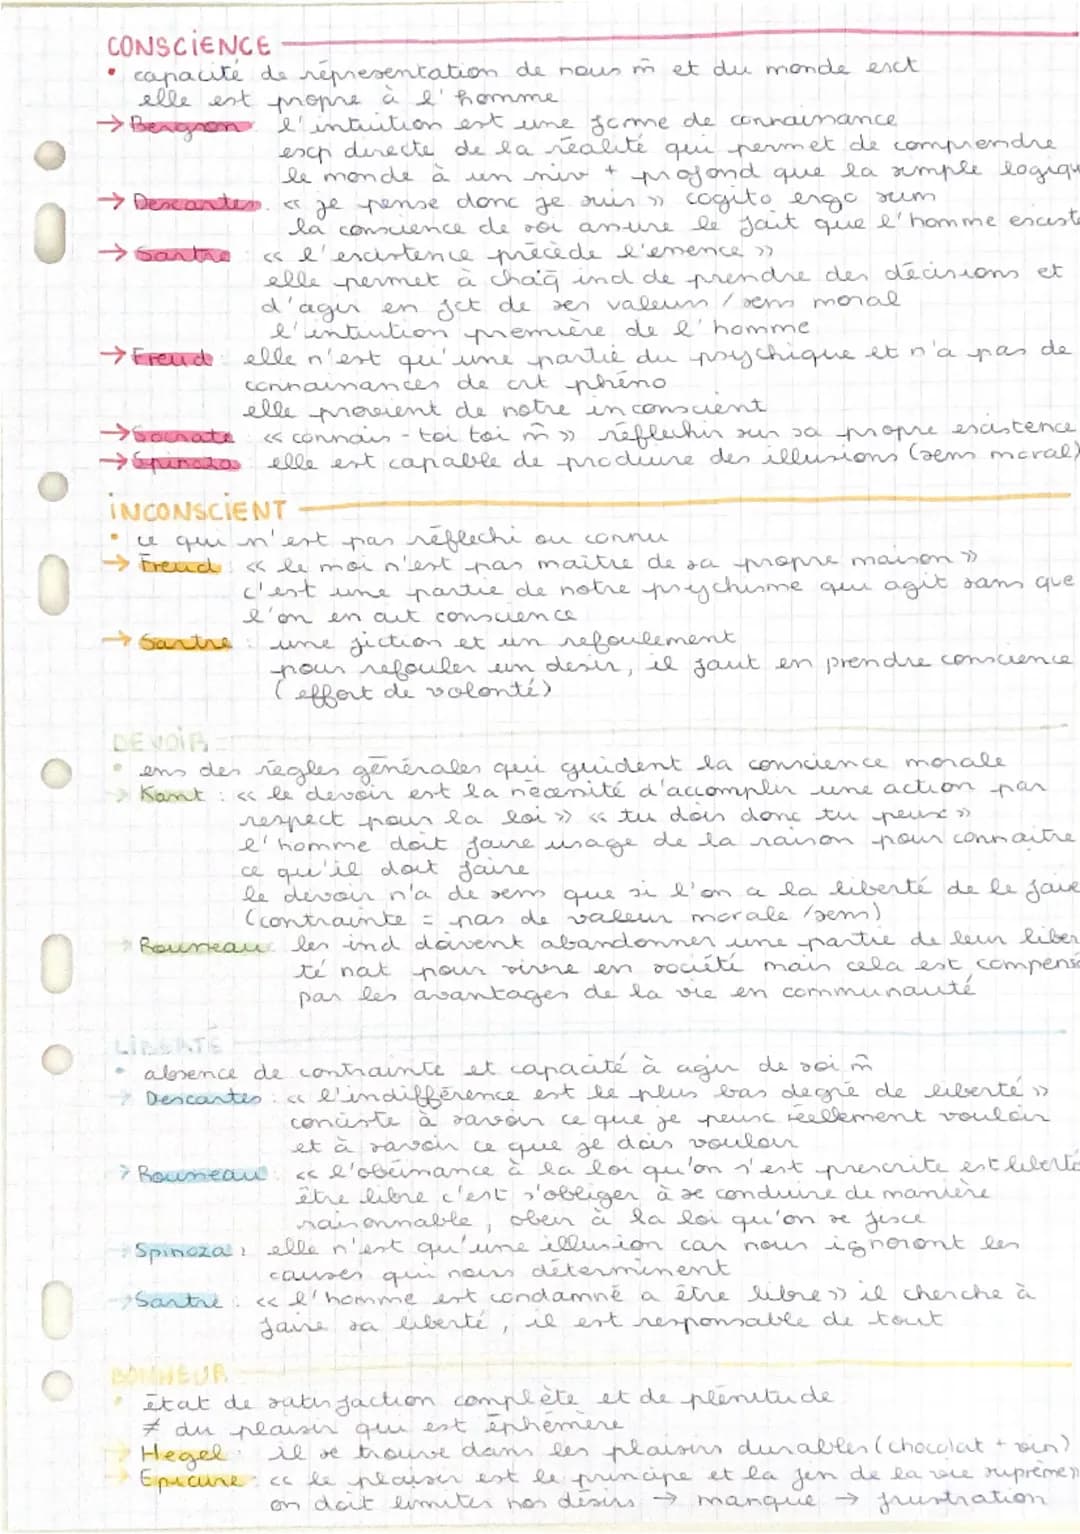 CONSCIENCE
• capacité de représentation de nous m̂ et du monde ext
elle est propre à l'homme
→ Bergson : l'intuition est une forme de connaissance
exp directe de la réalité qui permet de comprendre
le monde à un niv + profond que la simple logiqu
→ Descartes : « je pense donc je suis » cogito ergo sum
la conscience de soi assure le fait que l'homme existe
→ Sartre : « l'existence précède l'essence »
elle permet à chaq ind de prendre des décisions et
d'agir en fct de ses valeurs / sens moral
l'intuition première de l'homme
→ Freud : elle n'est qu'une partie du psychique et n'a pas de
connaissances de crt phéno
elle provient de notre inconscient
→ Socrate : « connais-toi toi m̂ » réflechir sur sa propre existence
→ Spinoza : elle est capable de produire des illusions (sens moral)
INCONSCIENT
• ce qui n'est pas réflechi ou connu
→ Freud : « le moi n'est pas maître de sa propre maison »
c'est une partie de notre psychisme qui agit sans que
l'on en ait conscience
→ Sartre : une fiction et un refoulement
pour refouler un desir, il faut en prendre conscience
(effort de volonté)
DEVOIR
• ens des règles générales qui guident la conscience morale
→ Kant : « le devoir est la nécessité d'accomplir une action par
respect pour la loi » « tu dois donc tu peux »
l'homme doit faire usage de la raison pour connaitre
ce qu'il doit faire
le devoir n'a de sens que si l'on a la liberté de le faire
(contrainte = pas de valeur morale / sens)
→ Rousseau : les ind doivent abandonner une partie de leur liber
té nat pour vivre en société mais cela est compensé
par les avantages de la vie en communauté
LIBERTÉ
• absence de contrainte et capacité à agir de soi m̂
→ Descartes : « l'indifférence est le plus bas degré de liberté »
consiste à savoir ce que je peux réellement vouloir
et à savoir ce que je dois vouloir
→ Rousseau : « l'obéissance à la loi qu'on s'est prescrite est liberté
être libre c'est s'obliger à se conduire de manière
raisonnable, obeir à la loi qu'on se fixe
→ Spinoza : elle n'est qu'une illusion car nous ignoront les
causes qui nous déterminent
→ Sartre : « l'homme est condamné a être libre » il cherche à
faire sa liberté, il est responsable de tout
BONHEUR
• état de satisfaction complète et de plénitude
≠ du plaisir qui est éphémère
→ Hegel : il se trouve dans les plaisirs durables (chocolat + vin)
→ Epicure : « le plaisir est le principe et la fin de la vie suprême »
on doit limiter nos désirs → manque → frustration